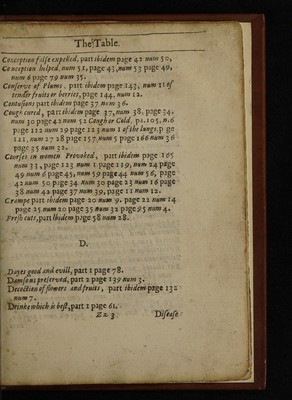 The Table.
Conception false expelled, part ibidem page 42 num 50,
Conception helped, num 51, page 43, num 53 page 49,
num 6 page 79 num 35.
Conserve of Plums, part ibidem page 143, num 11 of
tender fruits or berries, page 144, num 12.
Contusions part ibidem page 37 num 36.
Cough cured, part ibidem page 37, num 38, page 34,
num 30 page 42 num 52 Cough or Cold, p. 105, n. 6
page 112 num 29 page 123 num 1 of the lungs, p ge
121, num 27 28 page 157 num 5 page 166 num 36
page 35 num 32.
Courses in women Provoked, part ibidem page 165
num 33, page 123 num 1 page 119, num 24 page
49 num 6 page 45, num 59 page 44 num 56, page
42 num 50 page 34 num 30 page 23 num 16 page
38 num 42 page 37 num 39, page 11 num 12.
Crampe part ibidem page 20 num 9. page 22 num 14
page 25 num 20 page 35 num 32 page 95 num 4.
Fresh cuts, part ibidem page 58 num 28.
D.
Dayes good and evill, part 1 page 78.
Damsons preserved, part 2 page 139 num 3.
Decoction of flowers and fruits, part ibidem page 132
num 7.
Drinke which is best, part 1 page 61.
Zz 3
Disease